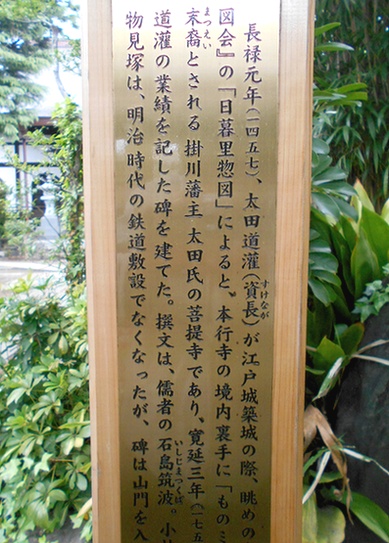 長禄元年（一四五七）、太田道灌（資長）が江戸城築城の際、眺めの
すけなが
図会』の「日暮里惣図」によると。本行寺の境内裏手に「ものみ
まつえい
末裔とされる 掛川藩主 太田氏の菩提寺であり、寛延三年（一七五
道灌の業績を記した碑を建てた。撰文は、儒者の石島筑波。小
いしじまつくば
物見塚は、明治時代の鉄道敷設でなくなったが、碑は山門を入